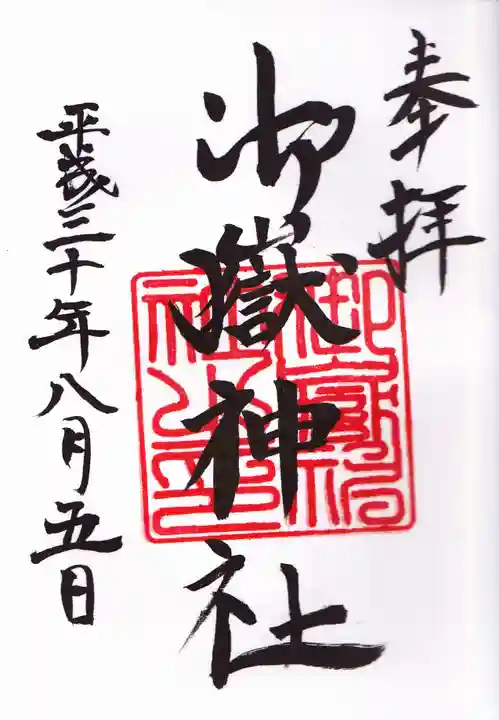 奉拝
御嶽神社
御嶽神社之印
平成三十年八月五日